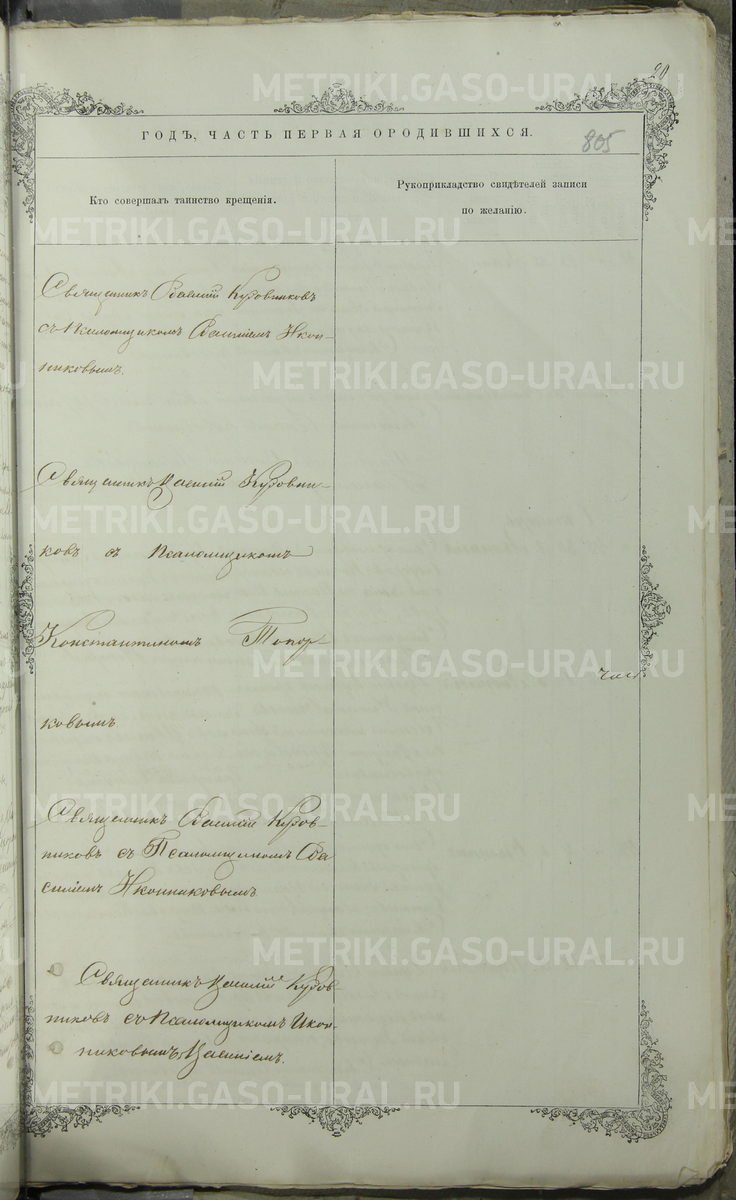 20
ГОДЪ, ЧАСТЬ ПЕРВАЯ ОРОДИВШИХСЯ.
805
Кто совершалъ таинство крещенія.
Рукоприкладство свидѣтелей записи
по желанію.
Священникъ Василій Кудовников
съ Псаломщикомъ Василіемъ Икон-
никовымъ.
Священникъ Василій
ковъ съ Псаломщикомъ
Константиномъ Топор
ковымъ
Священникъ Василій
никовъ съ Псаломщикомъ Ва
силіемъ Иконниковымъ.
Священникъ Василій
никовъ съ Псаломщикомъ Икон-
никовымъ Василіемъ.
METRIKI.GASO-URAL.RU